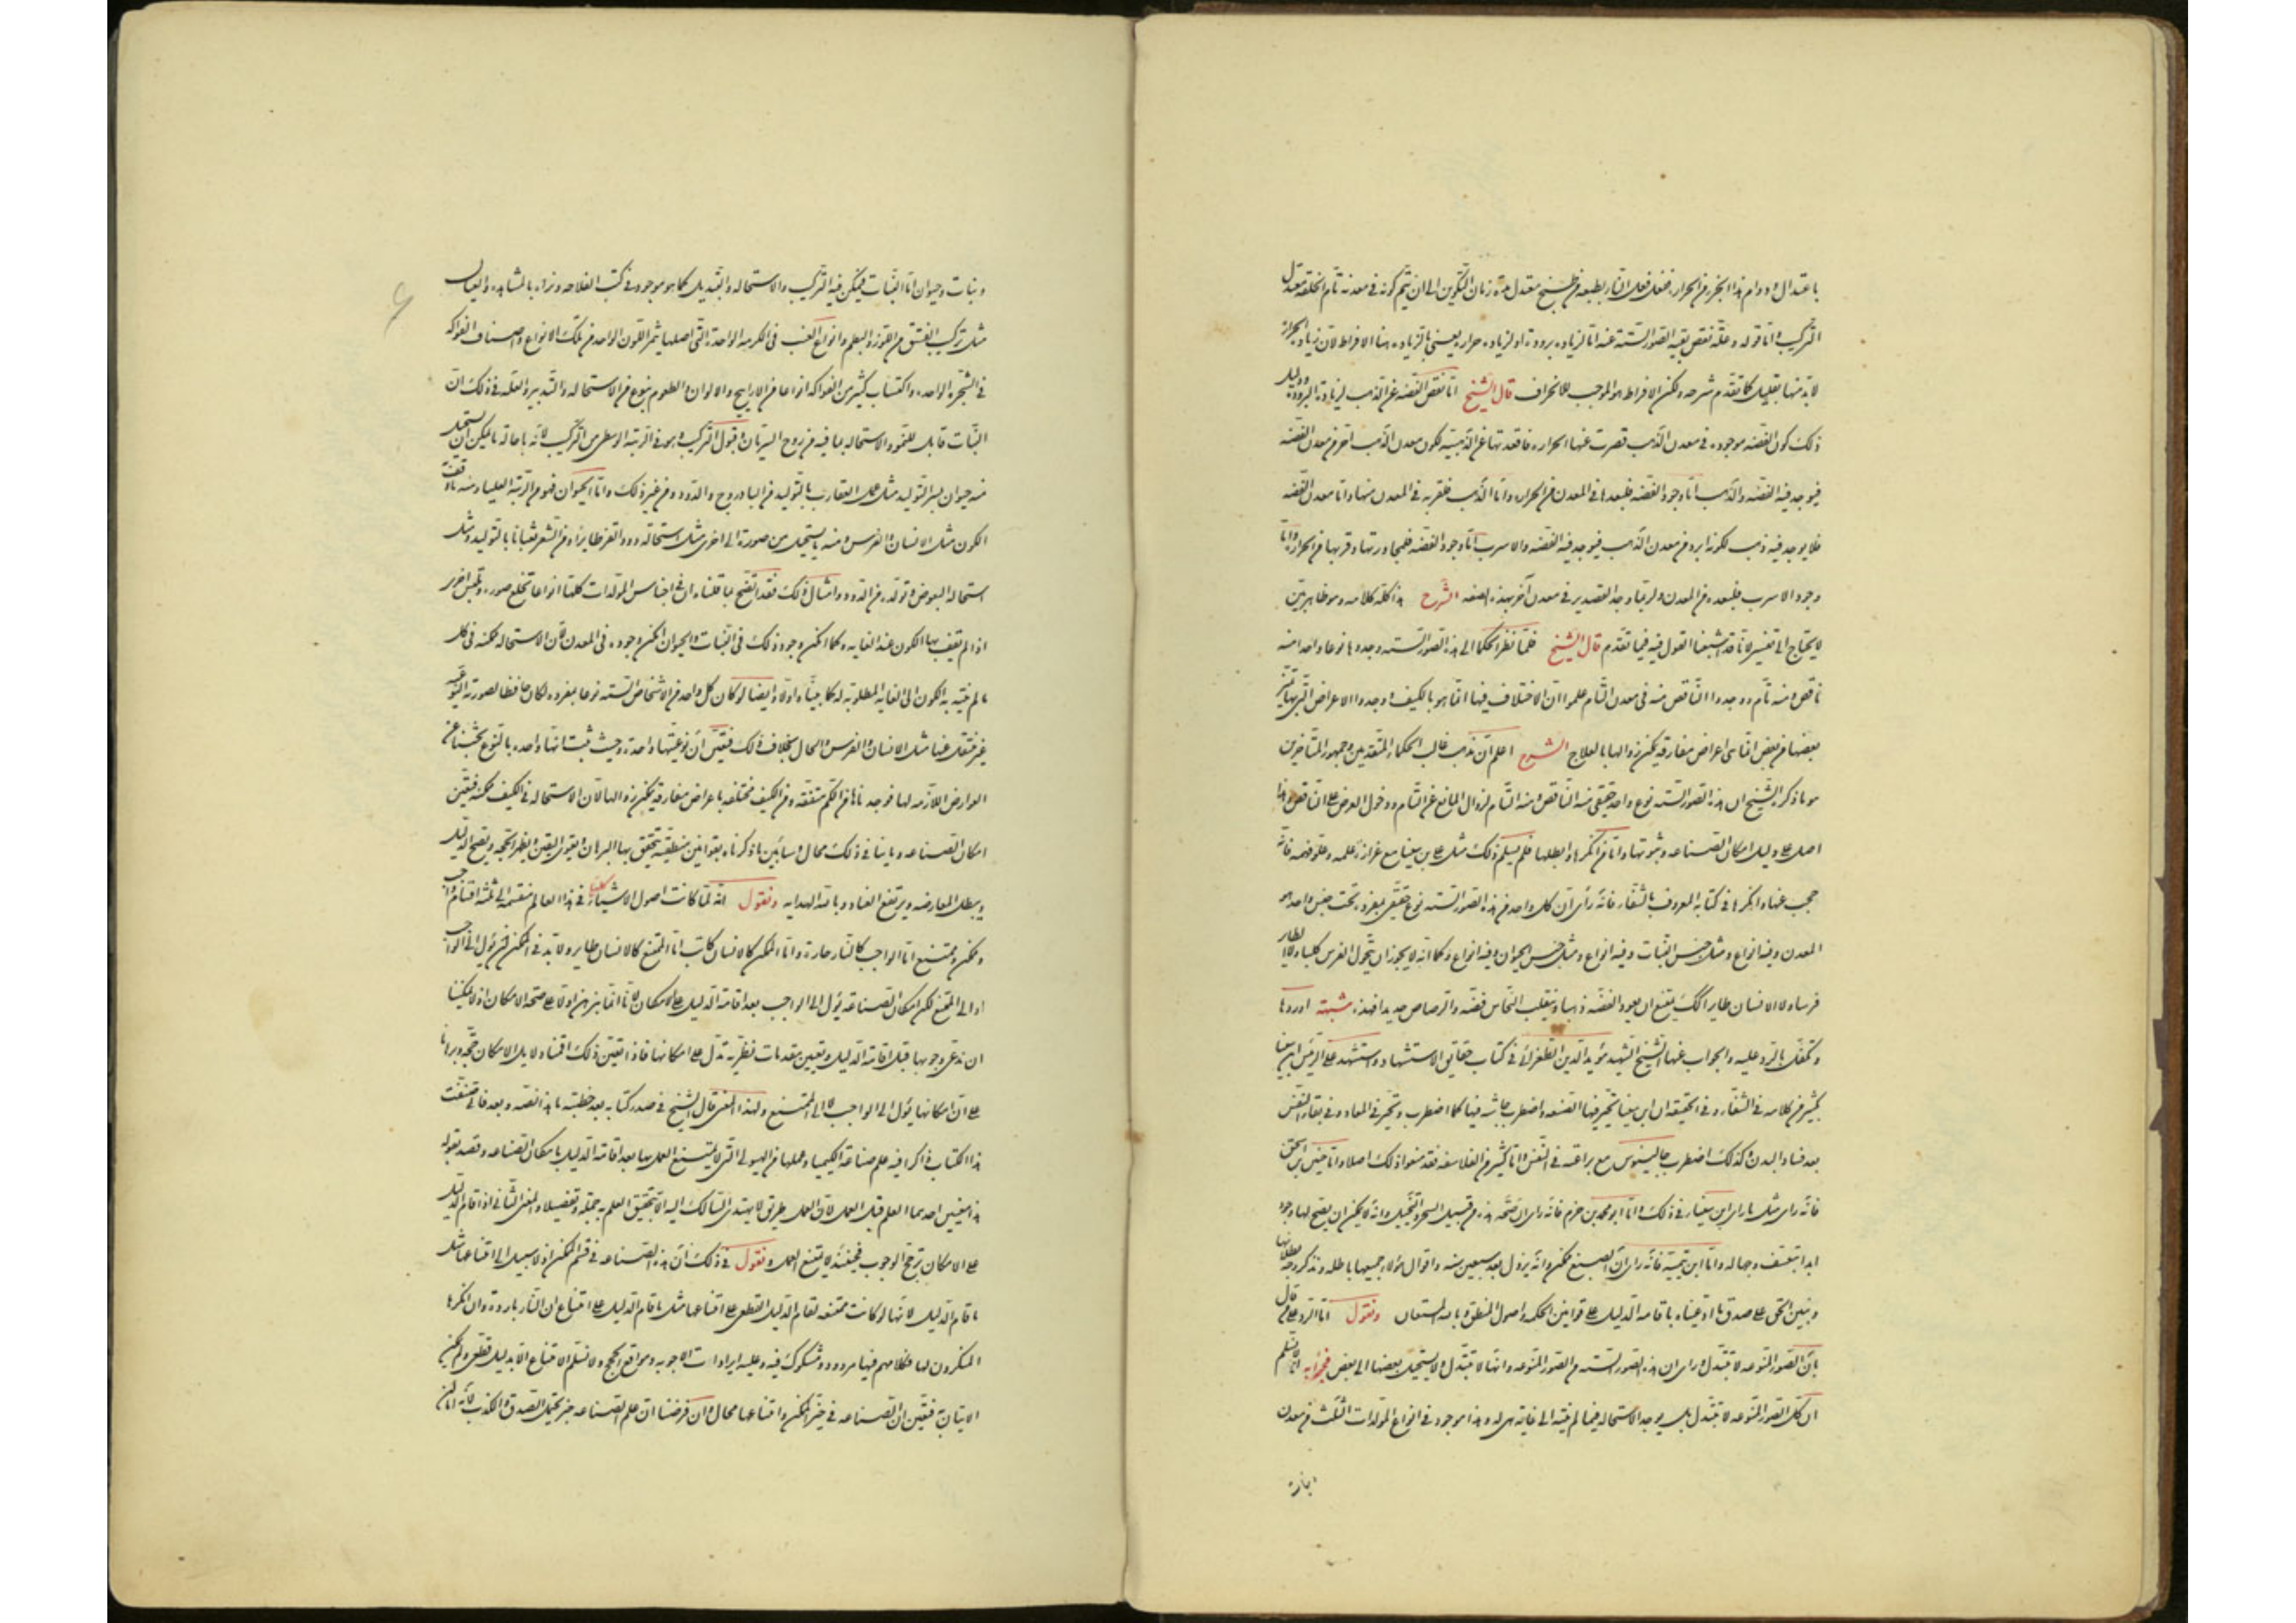 باعتدال ودوام هذا البخر من الحرارة ففعل فعل النار بطبعه من طبخ معتدل مدة زمان التكوين الى ان يتم كونه في معدنه تام الخلقة معتدل
التركيب واما قوله وعلة نقص بقية الصور الستة عنه اما لزيادة برودة او لزيادة حرارة يعني بالزيادة هنا الافراط لان زيادة الحرارة
لا بد منها بقليل كما تقدم شرحه ولكن الافراط هو الموجب للانحراف قال الشيخ اما نقص الفضة عن الذهب لزيادة البرودة ودليل
ذلك كون الفضة موجودة في معدن الذهب قصرت عنها الحرارة فاقعدتها عن الذهبية لكون معدن الذهب احر من معدن الفضة
فيوجد فيه الفضة والذهب اما وجود الفضة فلبعدها في المعدن من الحرارة واما الذهب فلقربه في المعدن منها واما معدن الفضة
فلا يوجد فيه ذهب لكونه ابرد من معدن الذهب فيوجد فيه الفضة والاسرب اما وجود الفضة فلمجاورتها وقربها من الحرارة واما
وجود الاسرب فلبعده من المعدن ولربما وجد القصدير في معدن آخر بهذه الصفة الشرح هذا كله كلامه وهو ظاهر بين
لا يحتاج الى تفسير لانا قد اشبعنا القول فيه فيما تقدم قال الشيخ فلما نظر الحكماء الى هذه الصور الستة وجدوها نوعا واحدا منه
ناقص ومنه تام ووجدوا الناقص منه في معدن التام علموا ان الاختلاف فيها انما هو بالكيف ووجدوا الاعراض التي بها تميز
بعضها من بعض انما هي اعراض مفارقة يمكن زوالها بالعلاج الشرح اعلم ان مذهب غالب الحكماء المتقدمين وجمهور المتاخرين
هو ما ذكره الشيخ ان هذه الصور الستة نوع واحد حقيقي منه الناقص ومنه التام لزوال المانع عن التام ودخول العرض على الناقص وهذا
اصل على دليل امكان الصناعة وثبوتها واما من انكرها وابطلها فلم يسلم ذلك مثل علي بن سينا مع غزارة علمه وعلو فهمه فانه
حجب عنها وانكرها في كتابه المعروف بالشفاء فانه رأى ان كل واحد من هذه الصور الستة نوع حقيقي بمفرده تحت جنس واحد هو
المعدن وفيه انواع ومثل جنس النبات وفيه انواع ومثل جنس الحيوان وفيه انواع وكما انه لا يجوز ان يتحول الفرس كلبا ولا الطاير
فرسا ولا الانسان طايرا كذلك يمتنع ان يعود الفضة ذهبا وينقلب النحاس فضة والرصاص حديدا فهذه شبهته اوردها
وتكفل بالرد عليه والجواب عنها الشيخ الشهيد مؤيد الدين الطغرائي في كتاب حقايق الاستشهاد واستشهد على الرئيس ابن سينا
بكثير من كلامه في الشفاء وفي الحقيقة ان ابن سينا تحير فيها لصنعه واضطرب جاشه فيها كما اضطرب وتحير في المعاد وفي بقاء النفس
بعد فساد البدن وكذلك اضطرب جالينوس مع براعته في النفس واما كثير من الفلاسفة فقد منعوا ذلك اصلا واما حنين بن اسحق
فانه راى مثل ما راى ابن سينا في ذلك واما ابو محمد بن حزم فانه راى ان صحة هذه من قبيل السحر والتخييل وانه لا يمكن ان يصح لها وجود
ابدا بتعسف وجهالة واما ابن تيمية فانه راى ان الصبغ ممكن وانه يزول بعد سبعين سنة واقوال هؤلاء جميعها باطلة ونذكر وجه بطلانها
ونبين الحق على صدق ما ادعيناه باقامة الدليل على قوانين الحكمة واصول المنطق وبالله المستعان ونقول اما الرد على من قال
بان الصور المنوعة لا تتبدل وراى ان هذه الصور الستة من الصور المنوعة وانها لا تتبدل ولا يستحيل بعضها الى بعض فجوابه انا لا نسلم
ان كل الصور المنوعة لا تتبدل بل يوجد الاستحالة فيما لم ينته الى غاية هي له وهذا موجود في انواع المولدات الثلث من معدن
ونبات وحيوان اما النبات فيمكن فيه التركيب والاستحالة والتبديل كما هو موجود في كتب الفلاحة ونراه بالمشاهدة والعيان
مثل تركيب الفستق من اللوز والبطم وانواع العنب في الكرمة الواحدة التي اصلها يثمر اللون الواحد من تلك الانواع واصناف الفواكه
في الشجرة الواحدة واكتساب كثير من الفواكه انواعا من الاراييح والالوان والطعوم بنوع من الاستحالة والتدبير والعلة في ذلك ان
النبات قابل للنمو والاستحالة لما فيه من روح السريان وقبول التركيب وهو في الرتبة الوسطى من التركيب لانه باحالة ما يمكن ان يستحيل
منه حيوان بسر التوليد مثل عمل العقارب بالتوليد من البادروج والدود ومن غير ذلك واما الحيوان فهو من الرتبة العليا ومنه ما وقف
الكون مثل الانسان والفرس ومنه ما يستحيل من صورة الى اخرى مثل استحالة دود القز طايرا ومن الشعر ثعبانا بالتوليد ومثل
استحالة البعوض وتولده من الدود وامثال ذلك فقد اتضح لما قلناه ان في اجناس المولدات كلها انواعا تخلع صورة وتلبس اخرى
اذا لم يقف بها الكون عند الغاية وكما امكن وجود ذلك في النبات والحيوان امكن وجوده في المعدن لان الاستحالة ممكنة في كل
ما لم ينته به الكون الى الغاية المطلوبة له كما بيناه اولا وايضا لو كان كل واحد من الاشخاص الستة نوعا بمفرده لكان حافظا لصورته النوعية
غير منتقل عنها مثل الانسان والفرس والحال بخلاف ذلك فتعين ان نوعيتها واحدة وحيث ثبت انها واحدة بالنوع بحثنا عن
العوارض اللازمة لها فوجدناها في الكم متفقة وفي الكيف مختلفة باعراض مفارقة يمكن زوالها لان الاستحالة في الكيف ممكنة فتعين
امكان الصناعة وما ينافي ذلك محال وسابين ما ذكرناه بقوانين منطقية يتحقق بها البرهان ويقوى اليقين ويظهر الحجة ويتضح الدليل
ويبطل المعارضة ويرتفع العناد وبالله الهداية ونقول انه لما كانت اصول الاشياء كلها في هذا العالم منقسمة الى ثلثة اقسام واجب
وممكن وممتنع اما الواجب كالنار حارة واما الممكن كالانسان كاتب اما الممتنع كالانسان طاير ولا بد في الممكن من يؤل الى الواجب
او الى الممتنع لكن امكان الصناعة يؤل الى الواجب بعد اقامة الدليل على الامكان لانا انما نبرهن اولا على صحة الامكان اذ لا يمكننا
ان ندعي وجوبها قبل اقامة الدليل وتعيين مقدمات نظرية تدل على امكانها فاذا تعين ذلك اقمناه ولايل الامكان حجة وبرهانا
على ان امكانها يؤل الى الواجب لا الى الممتنع ولهذا المعنى قال الشيخ في صدر كتابه بعد خطبته ما هذا نصه وبعد فاني صنفت
هذا الكتاب ذاكرا فيه علم صناعة الكيميا وعملها من الهيولى التي لا يمتنع العمل بها بعد اقامة الدليل بامكان الصناعة وقصد بقوله
هذا معنيين احدهما العلم قبل العمل لان العمل طريق لا يهتدي السالك اليه الا بتحقيق العلم به جملة وتفصيلا والمعنى الثاني اذا قام الدليل
على الامكان ترجح الوجوب فحينئذ لا يمتنع العمل ونقول في ذلك ان هذه الصناعة في قسم الممكن اذ لا سبيل الى امتناعها مثل
ما قام الدليل لانها لو كانت ممتنعة لقام الدليل القطعي على امتناعها مثل ما قام الدليل على امتناع ان النار باردة وان انكرها
المنكرون لها فكلامهم فيها مردود ومشكوك فيه وعليه ايرادات الاجوبة ومواقع الحجج ولا نسلم الامتناع الا بدليل قطعي ولم يمكن
الاتيان به فتعين ان الصناعة في حيز الممكن وامتناعها محال وان فرضنا ان علم الصناعة خبر يحتمل الصدق والكذب لانه اما ان